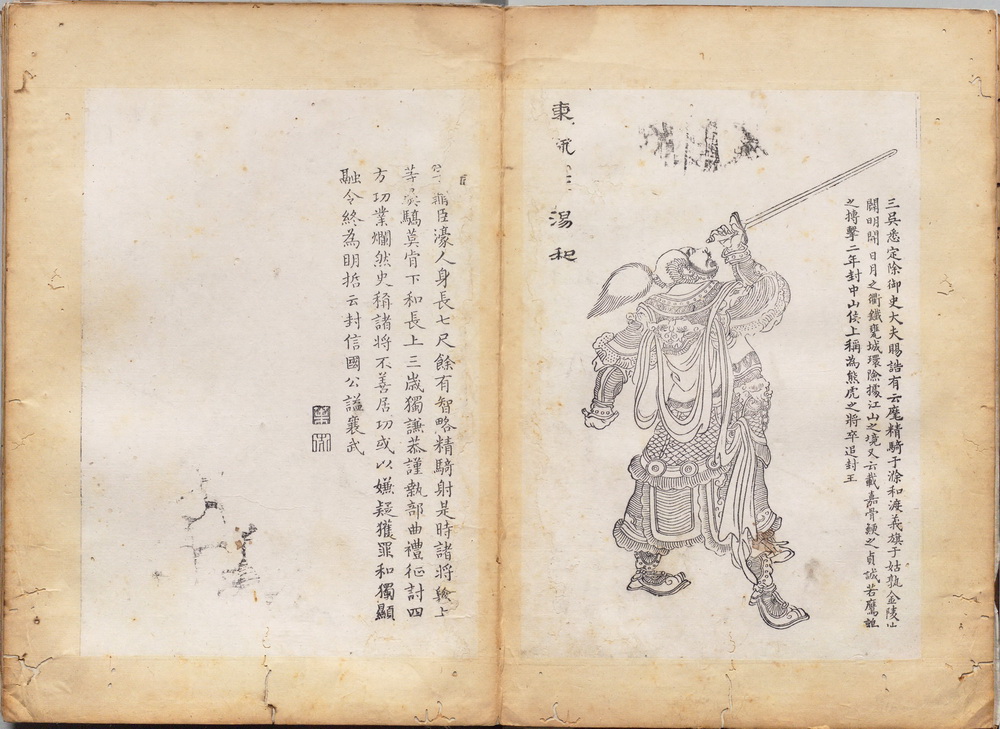 三吳悉定除御史大夫賜誥有云麾精騎于滁和渡義旗于姑孰金陵
闢明開日月之衢鐵甕城環險據江山之境又云載嘉骨鯁之貞誠若鷹
之摶擊二年封中山侯上稱為熊虎之將卒追封王
東 湯和
臣濠人身長七尺餘有智略精騎射是時諸將 上
等 驕莫肯下和長上三歲獨謙恭謹執部曲禮征討四
方功業爛然史稱諸將不善居功或以嫌疑獲罪和獨顯
融令終為明哲云封信國公謚襄武